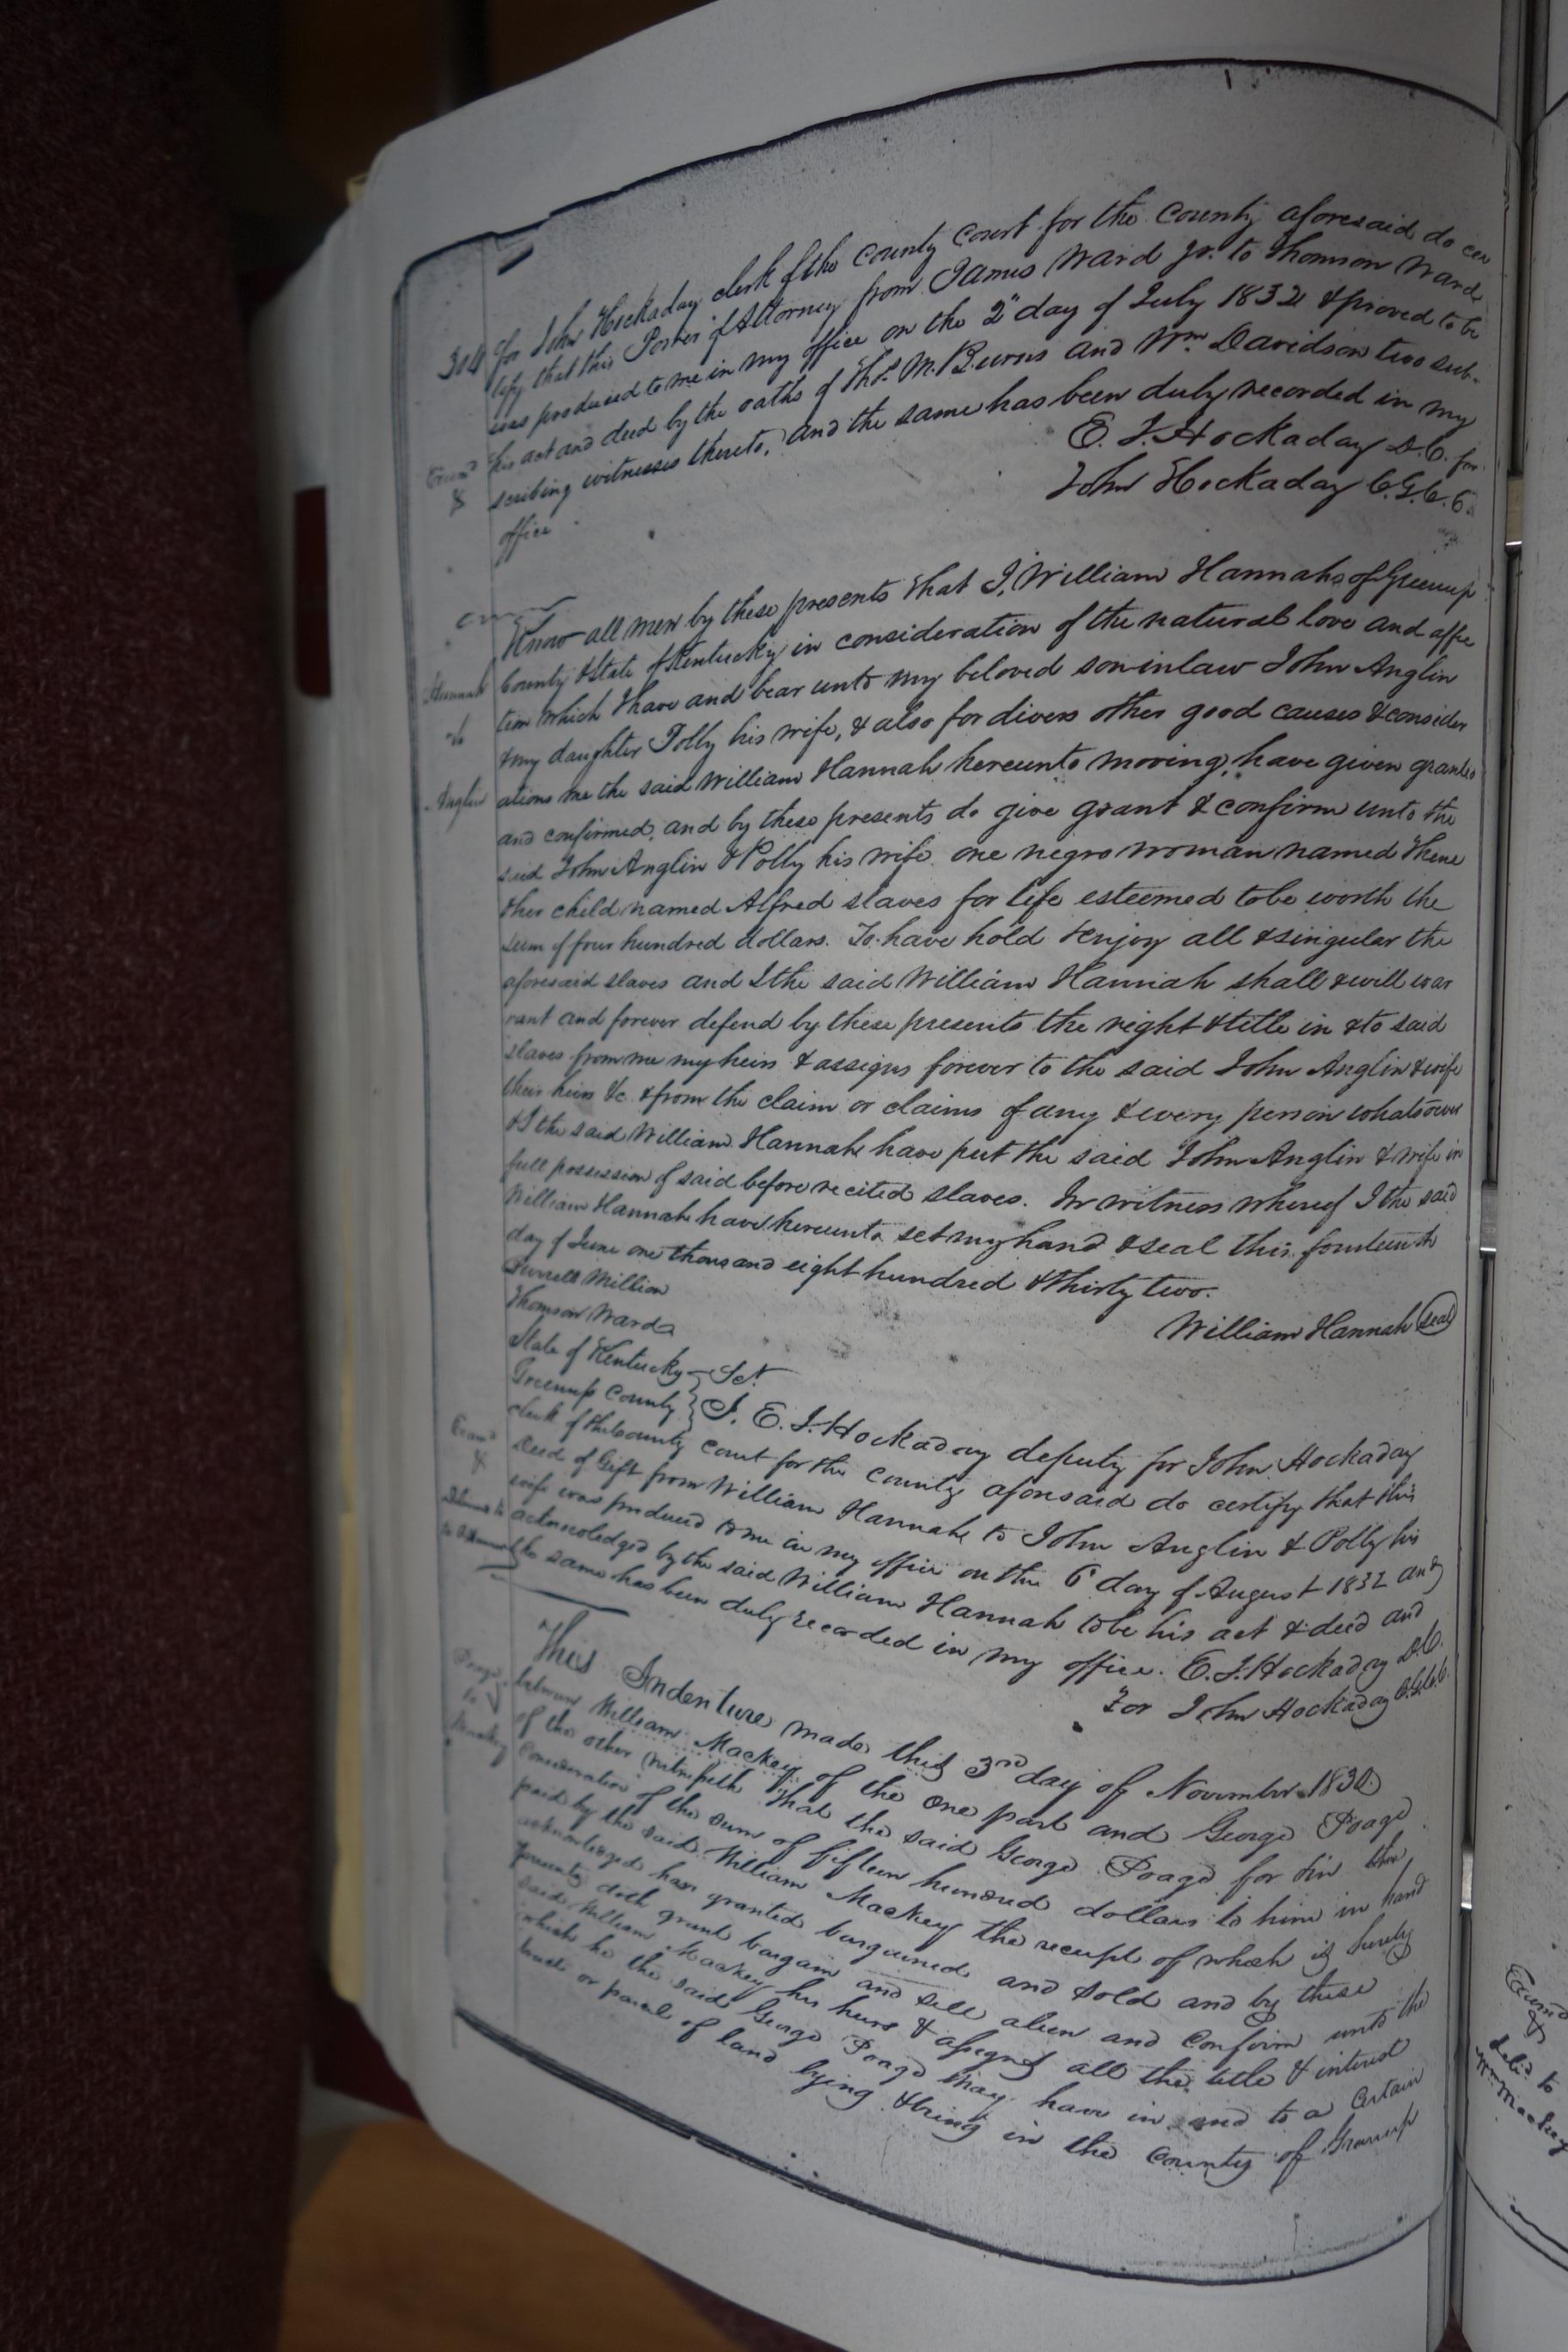 304
for John Hockaday clerk of the County Court for the County aforesaid do cer
tify that this Power of Attorney from James Ward Jr. to Thomson Ward
was produced to me in my office on the 2" day of July 1832 & proved to be
his act and deed by the oaths of Thos. M. Burns and Wm Davidson two sub-
scribing witnesses thereto, and the same has been duly recorded in my
office
Exam'd
&
E. J. Hockaday D.C. for
John Hockaday C.G.C.C.
Hannah
to
Anglin
Know all men by these presents that I, William Hannah of Greenup
County & State of Kentucky in consideration of the natural love and affec
tion which I have and bear unto my beloved son-in law John Anglin
& my daughter Polly his wife, & also for divers other good causes & consider
ations me the said William Hannah hereunto moving, have given granted
and confirmed, and by these presents do give grant & confirm unto the
said John Anglin & Polly his wife one negro woman named
& her child named Alfred slaves for life esteemed to be worth the
sum of four hundred dollars. To have hold & enjoy all & singular the
aforesaid slaves and I the said William Hannah shall & will war
rant and forever defend by these presents the right & title in & to said
slaves from me my heirs & assigns forever to the said John Anglin & wife
their heirs &c. & from the claim or claims of any & every person whatsoever
& I the said William Hannah have put the said John Anglin & wife in
full possession of said before recited slaves. In witness whereof I the said
William Hannah have hereunto set my hand & seal this fourteenth
day of June one thousand eight hundred & thirty two.
Million
Thomson Ward
William Hannah seal
State of Kentucky Sct.
Greenup County } I, E. J. Hockaday deputy for John Hockaday
clerk of the County Court for the County aforesaid do certify that this
Deed of Gift from William Hannah to John Anglin & Polly his
wife was produced to me in my office on the 6" day of August 1832 and
acknowledged by the said William Hannah to be his act & deed and
the same has been duly recorded in my office. E. J. Hockaday D.C.
For John Hockaday C.G.C.C.
Exam'd
&
Poage
to
Mackey
This Indenture made this 3rd day of November 1830
between William Mackey of the one part and George Poage
of the other Witnesseth that the said George Poage for & in the
Consideration of the sum of fifteen hundred dollars to him in hand
paid by the said William Mackey the receipt of which is hereby
acknowledged has granted bargained and sold and by these
presents doth grant bargain and sell alien and Confirm unto the
said William Mackey his heirs & assigns all the title & interest
which he the said George Poage may have in and to a Certain
tract or parcel of land lying & being in the County of Greenup
Exam'd
&
Deld to
Wm Mackey